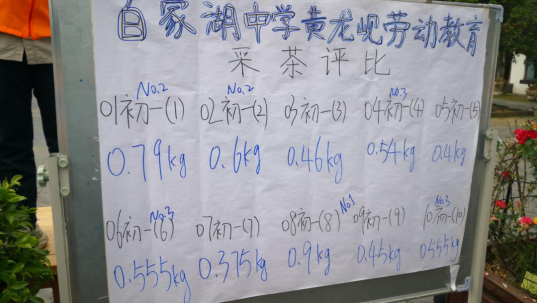 自家湖中学黄龙岘劳动教育
采茶评比
No.2 No.2 No.3
01初一(1) 02初一(2) 03初一(3) 04初一(4) 05初一(5)
0.79kg 0.6kg 0.46kg 0.54kg 0.4kg
No.3 No.1 No.3
06初一(6) 07初一(7) 08初一(8) 09初一(9) 10初一(10)
0.555kg 0.375kg 0.9kg 0.45kg 0.555kg